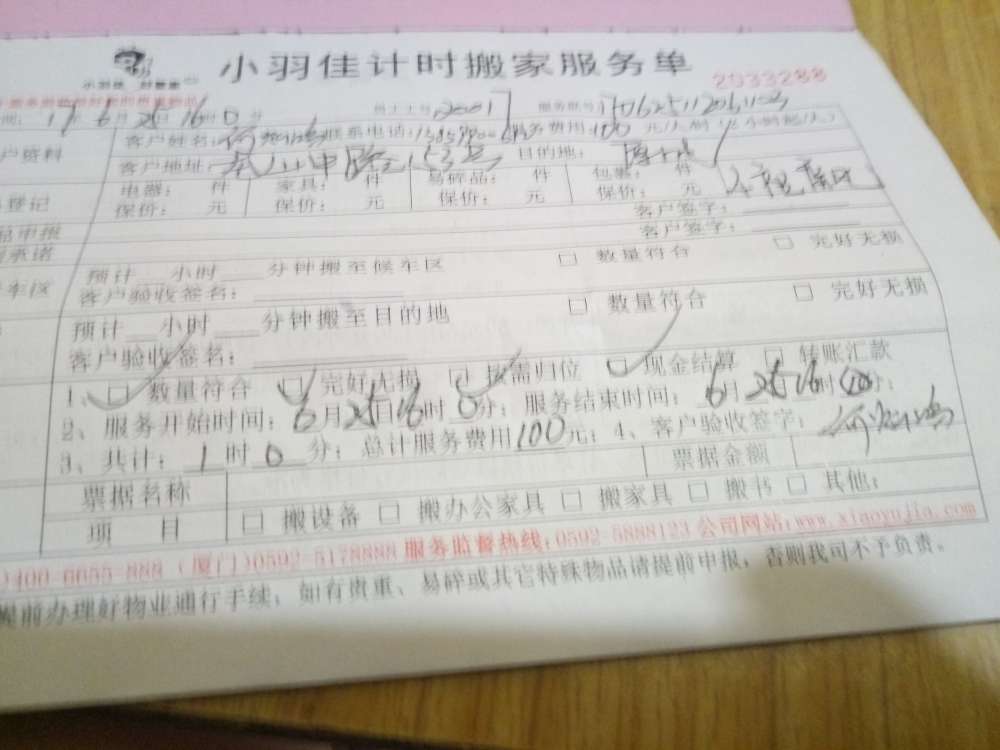 小羽佳计时搬家服务单
2933288
17年6月25 16时0分 员工工号 2001
客户姓名: 联系电话: 服务费用 100 元/人时
户资料 客户地址: 目的地:
登记 电器: 件 家具: 件 易碎品: 件 包裹: 件
保价: 元 保价: 元 保价: 元 保价: 元
品申报 客户签字:
承诺 客户签字:
车区 预计 小时 分钟搬至候车区 □ 数量符合 □ 完好无损
客户验收签名:
预计 小时 分钟搬至目的地 □ 数量符合 □ 完好无损
客户验收签名:
1、□ 数量符合 □ 完好无损 □ 按需归位 □ 现金结算 □ 转账汇款
2、服务开始时间: 6月25日16时0分; 服务结束时间: 6月25 16时 分;
3、共计: 1时0分; 总计服务费用100元; 4、客户验收签字:
票据名称 票据金额
项 目 □ 搬设备 □ 搬办公家具 □ 搬家具 □ 搬书 □ 其他:
)400-6055-888 (厦门)0592-5178888 服务监督热线:0592-5888123 公司网站:www.xiaoyujia.com
提前办理好物业通行手续, 如有贵重、易碎或其它特殊物品请提前申报, 否则我司不予负责。